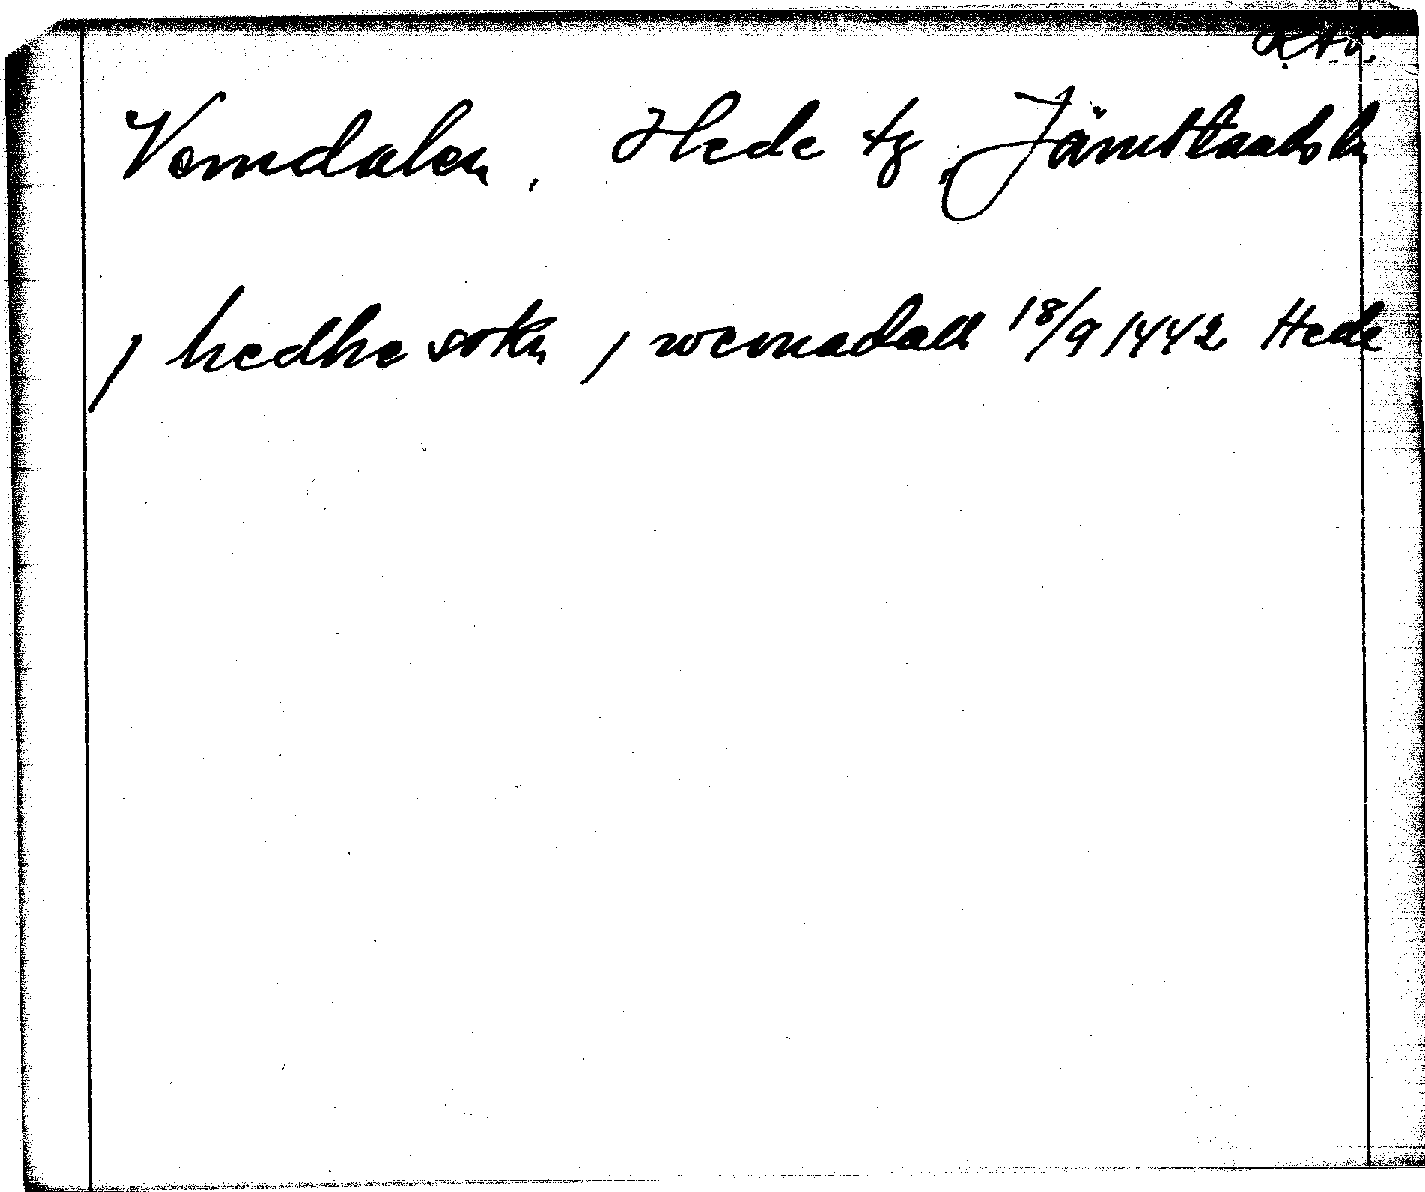 Vemdalen, Hede tg Jämtlands ln
j hedhe sokn j wemadall 18/9 1442 Hede